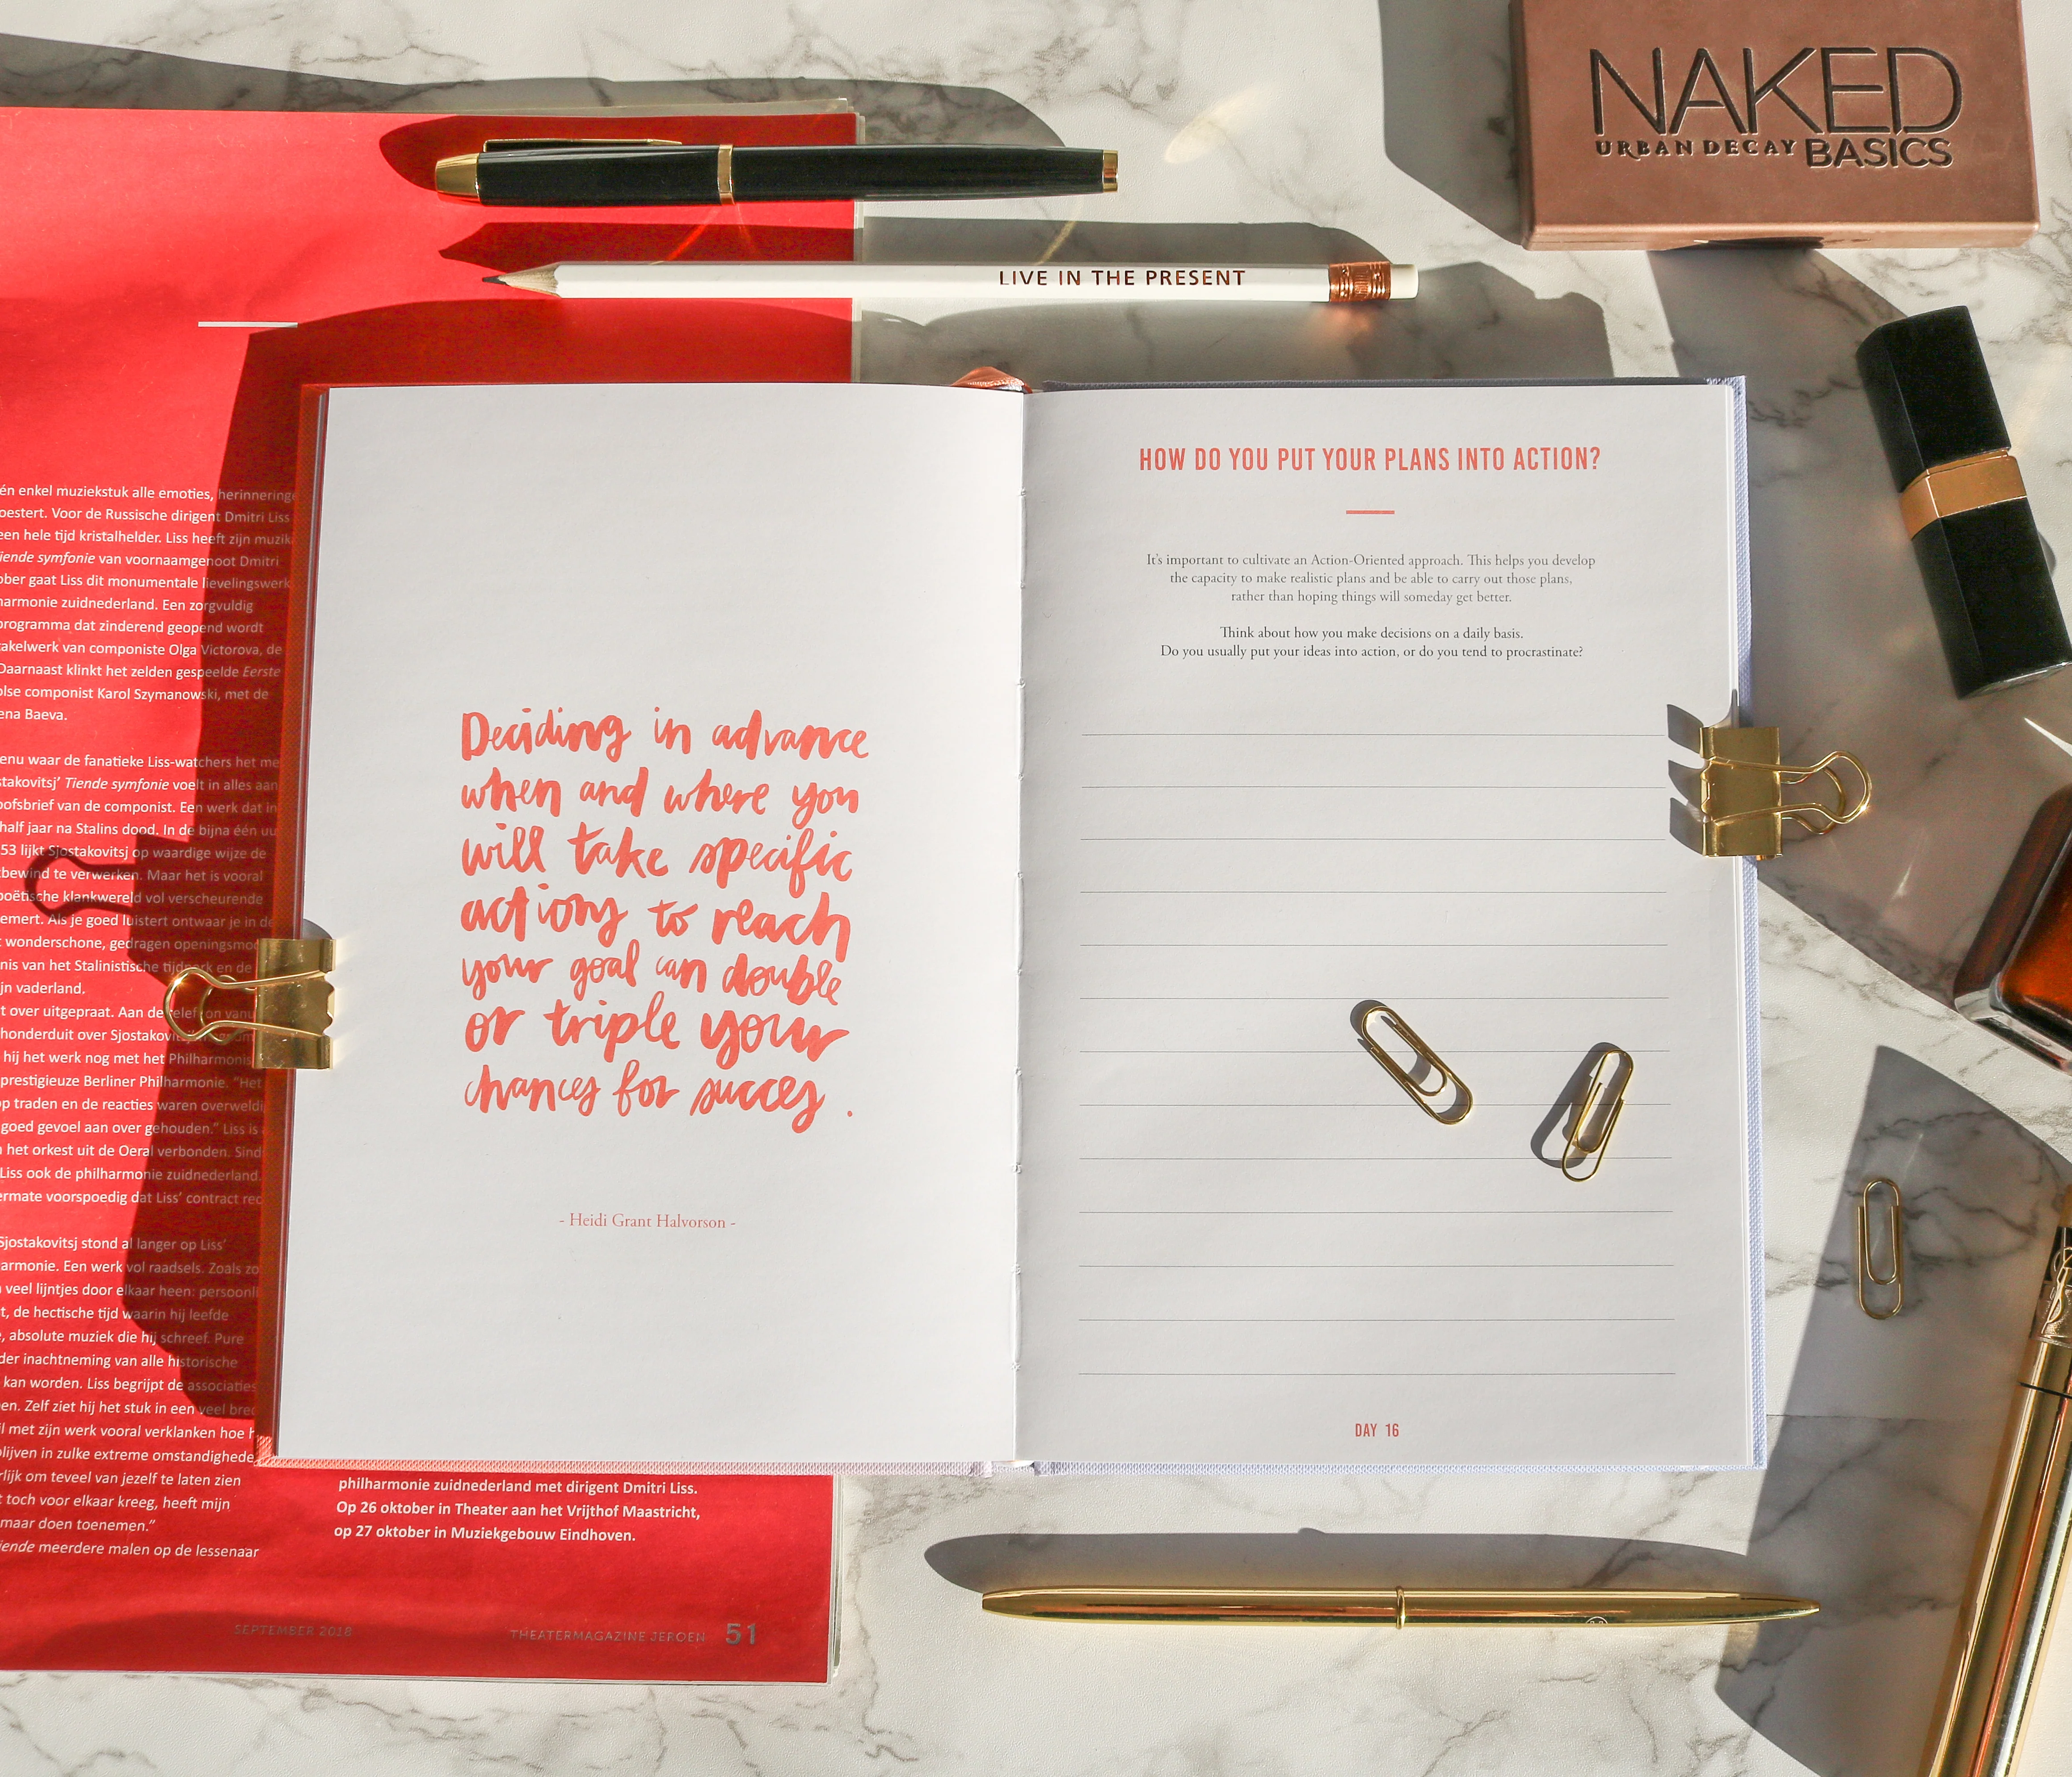 NAKED
URBAN DECAY BASICS
LIVE IN THE PRESENT
én enkel muziekstuk alle emoties, herinneringe
oestert. Voor de Russische dirigent Dmitri Liss
een hele tijd kristalhelder. Liss heeft zijn muzik
iende symfonie van voornaamgenoot Dmitri
ober gaat Liss dit monumentale lievelingswerk
harmonie zuidnederland. Een zorgvuldig
programma dat zinderend geopend wordt
takelwerk van componiste Olga Victorova, de
Daarnaast klinkt het zelden gespeelde Eerste
olse componist Karol Szymanowski, met de
ena Baeva.
enu waar de fanatieke Liss-watchers het me
stakovitsj' Tiende symfonie voelt in alles aan
oofsbrief van de componist. Een werk dat in
half jaar na Stalins dood. In de bijna één uu
53 lijkt Sjostakovitsj op waardige wijze de
bewind te verwerken. Maar het is vooral
poëtische klankwereld vol verscheurende
emert. Als je goed luistert ontwaar je in de
t wonderschone, gedragen openingsmo
nis van het Stalinistische tijdperk en de
jn vaderland.
t over uitgepraat. Aan de telefoon vanu
honderduit over
hij het werk nog met het Philharmonis
prestigieuze Berliner Philharmonie. "Het
op traden en de reacties waren overweldi
goed gevoel aan over gehouden." Liss is
n het orkest uit de Oeral verbonden. Sind
Liss ook de philharmonie zuidnederland.
ermate voorspoedig dat Liss' contract rec
Sjostakovitsj stond al langer op Liss'
armonie. Een werk vol raadsels. Zoals zo
n veel lijntjes door elkaar heen: persoonli
t, de hectische tijd waarin hij leefde
e, absolute muziek die hij schreef. Pure
der inachtneming van alle historische
kan worden. Liss begrijpt de associaties
en. Zelf ziet hij het stuk in een veel bred
il met zijn werk vooral verklanken hoe h
blijven in zulke extreme omstandighede
rlijk om teveel van jezelf te laten zien
t toch voor elkaar kreeg, heeft mijn
maar doen toenemen."
iende meerdere malen op de lessenaar
philharmonie zuidnederland met dirigent Dmitri Liss.
Op 26 oktober in Theater aan het Vrijthof Maastricht,
op 27 oktober in Muziekgebouw Eindhoven.
SEPTEMBER 2018 THEATERMAGAZINE JEROEN 51
Deciding in advance
when and where you
will take specific
actions to reach
your goal can double
or triple your
chances for succes.
- Heidi Grant Halvorson -
HOW DO YOU PUT YOUR PLANS INTO ACTION?
It's important to cultivate an Action-Oriented approach. This helps you develop
the capacity to make realistic plans and be able to carry out those plans,
rather than hoping things will someday get better.
Think about how you make decisions on a daily basis.
Do you usually put your ideas into action, or do you tend to procrastinate?
DAY 16